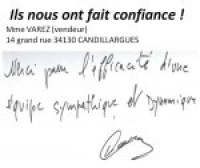 Ils nous ont fait confiance !
Mme VAREZ (vendeur)
14 grand rue 34130 CANDILLARGUES
Merci pour l'efficacité d'une
équipe sympathique et Dynamique